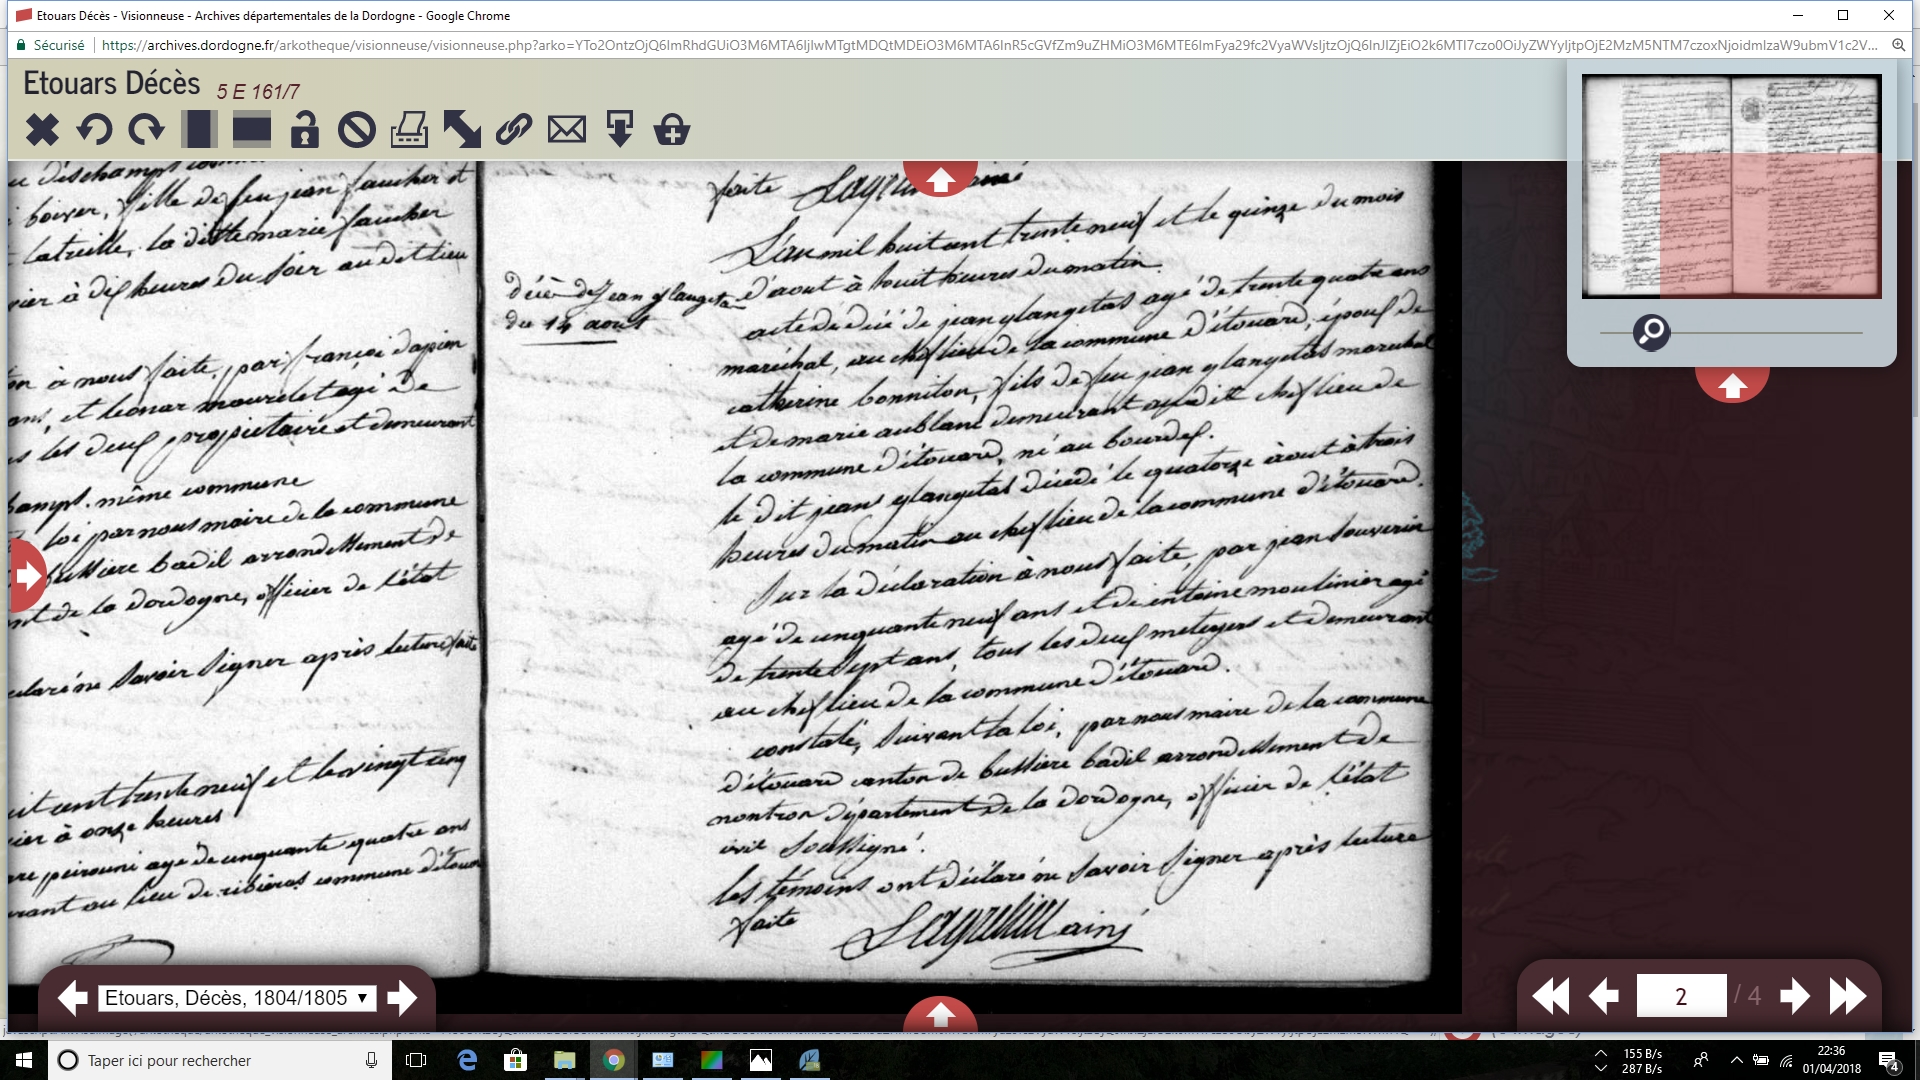 Etouars Décès - Visionneuse - Archives départementales de la Dordogne - Google Chrome
Sécurisé
https://archives.dordogne.fr/arkotheque/visionneuse/visionneuse.php?arko=
Etouars Décès 5 E 161/7
boiver, fille de feu jean faucher et
latreille, la ditte marie faucher
à dix heures du soir au dit lieu
à nous faite, par françois dapien
ans, et leonar mourelet agé de
les deux propietaire et demeurant
même commune
loi par nous maire de la commune
bussiere badil arrondissement de
de la dordogne, officier de l'état
ne savoir signer après lecture faite
cent trente neuf et le vingt cinq
à onze heures
peirouni age de cinquante quatre ans
au lieu de ribieras commune d'étouar
faite
L'an mil huit cent trente neuf et le quinze du mois
d'aout à huit heures du matin.
décè de jean glangeta
du 14 aout
acte de décé de jean glangetas agé de trente quatre ans
maréchal, au chef lieu de la commune d'étouard, épouf de
catherine bonniton, fils de feu jean glangetas marechal
et de marie aublanc demeurant audit chef lieu de
la commune d'étouard, né au bourdex.
le dit jeans glangetas décédé le quatorze àout à trois
heures du matin au chef lieu de la commune d'étouard.
Sur la déclaration à nous faite, par jean souverin
agé de cinquante neuf ans et de entoine moulinier agé
de trente sept ans, tous les deux meteyers et demeurant
au chef lieu de la commune d'étouard.
constaté, suivant la loi, par nous maire de la commune
d'étouard canton de bussiere badil arrondissement de
nontron département de la dordogne, officier de l'état
civil soussigné.
les témoins ont déclaré ne savoir signer après lecture
faite
ainé
Etouars, Décès, 1804/1805
2 / 4
Taper ici pour rechercher
155 B/s
287 B/s
22:36
01/04/2018
4